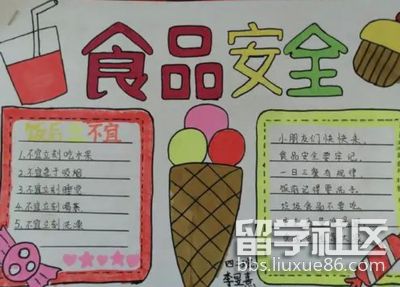 食品安全
饭后 不宜
1.不宜立刻吃水果
2.不宜急于吸烟
3.不宜立刻睡觉
4.不宜立刻喝茶
5.不宜立刻洗澡
小朋友们快快来,
食品安全要牢记,
一日三餐有规律,
饭前记得要洗手,
垃圾食品不要吃
四
李
留学社区
bbs.liuxue86.com